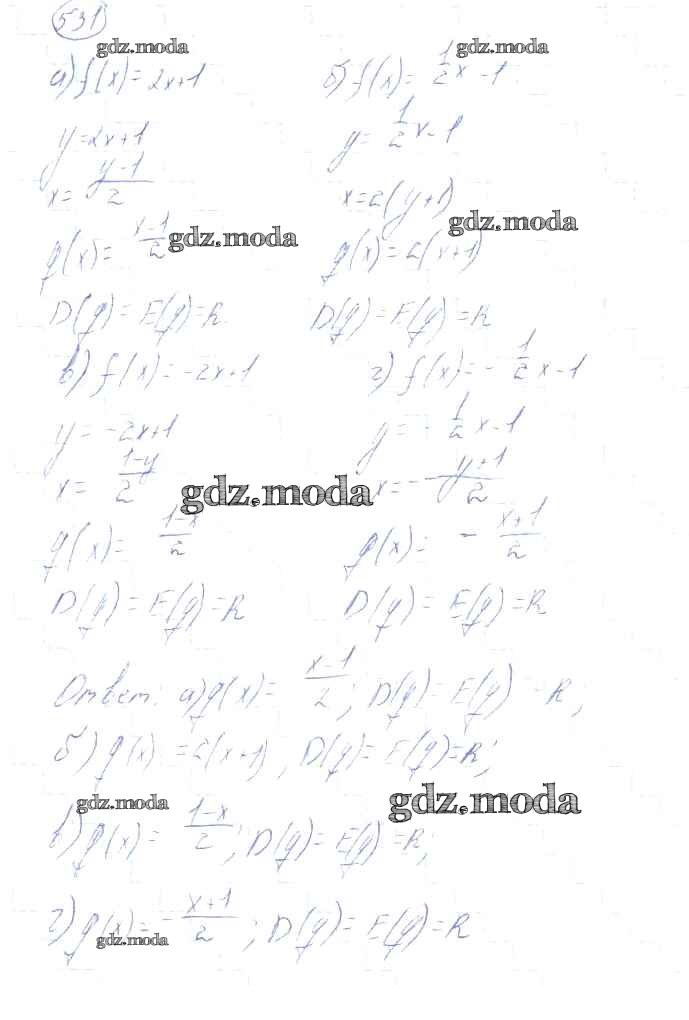 531
gdz.moda gdz.moda
а) f(x) = 2x+1 б) f(x) = 1/2 x - 1
y = 2x+1 y = 1/2 x - 1
x = (y-1)/2 x = 2(y+1)
g(x) = (x-1)/2 gdz.moda g(x) = 2(x+1) gdz.moda
D(g) = E(g) = R. D(g) = E(g) = R
в) f(x) = -2x+1 г) f(x) = - 1/2 x - 1
y = -2x+1 y = - 1/2 x - 1
x = (1-y)/2 gdz.moda x = - (y+1)/2
g(x) = (1-x)/2 g(x) = - (x+1)/2
D(g) = E(g) = R D(g) = E(g) = R
Ответ: а) g(x) = (x-1)/2 ; D(g) = E(g) = R;
б) g(x) = 2(x+1) ; D(g) = E(g) = R;
gdz.moda gdz.moda
в) g(x) = (1-x)/2 ; D(g) = E(g) = R;
г) g(x) = - (x+1)/2 ; D(g) = E(g) = R
gdz.moda